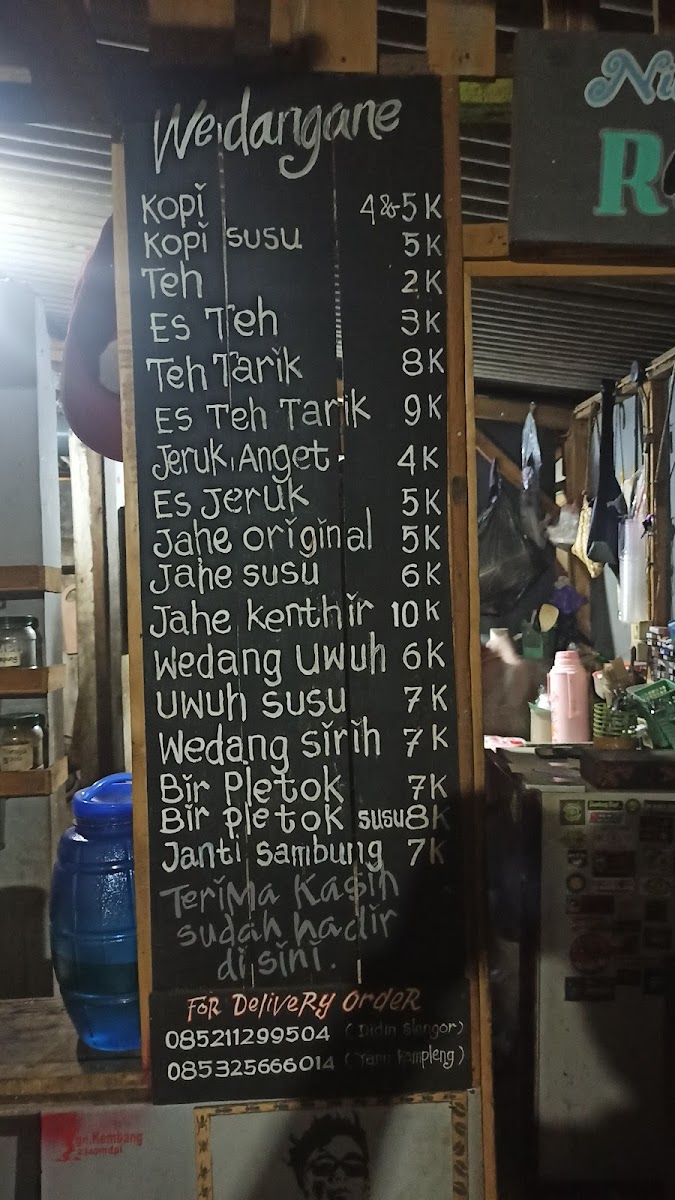 Weidangane
Kopi 4&5K
Kopi susu 5K
Teh 2K
Es Teh 3K
Teh Tarik 8K
Es Teh Tarik 9K
Jeruk Anget 4K
Es Jeruk 5K
Jahe original 5K
Jahe susu 6K
Jahe kenthir 10K
Wedang uwuh 6K
Uwuh susu 7K
Wedang sirih 7K
Bir Pletok 7K
Bir Pletok susu 8K
Janti sambung 7K
Terima Kasih
sudah hadir
di sini.
FoR DeliveRy OrdeR
085211299504 (Didin Slengor)
085325666014 (Yanii Kompleng)
Ni
R
gn.Kembang